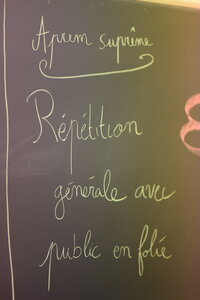 Aprem suprême
Répétition
générale avec
public en folie